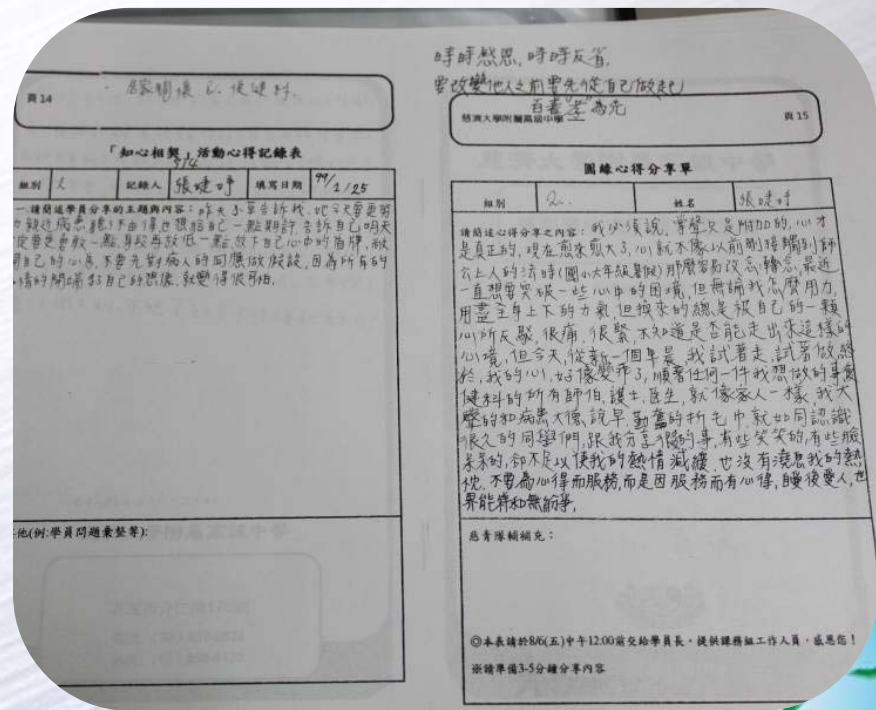 頁14
「知心相契」活動心得記錄表
組別 2 記錄人 張婕妤 填寫日期 99/1/25
一、請簡述學員分享的主題與內容：昨天小草告訴我，她今天要更努
力親近病患，聽了不由得也想給自己一點期許，告訴自己明天
一定要更勇敢一點，身段再放低一點，放下自己心中的盾牌，敞
開自己的心房，不要先對病人的回應做假設，因為所有的
事情的開端都自己的想像，就變得很可怕。
其他(例:學員問題彙整等):
時時感恩，時時反省，
要改變他人之前要先從自己做起
百善"孝"為先
慈濟大學附屬高級中學
頁15
圓緣心得分享單
組別 2. 姓名 張婕妤
請簡述心得分享之內容：我必須說，掌聲只是附加的，心才
是真正的，現在愈來愈大了，心就不像以前剛接觸到師
公上人的法時(國小六年級暑假)那麼容易改念、轉念，最近
一直想要突破一些心中的困境，但無論我怎麼用力，
用盡全身上下的力氣，但換來的總是被自己的一顆
心所反駁，很痛，很緊，不知道是否能走出來這樣的
心境，但今天，從新一個早晨，我試著走，試著做，終
於，我的心，好像變乖了，順著任何一件我想做的事，復
健科的所有師伯，護士，醫生，就像家人一樣，我大
聲的和病患大德說早，勤奮的折毛巾，就如同認識
很久的同學們，跟我分享 的事，有些笑笑的，有些臉
呆呆的，卻不足以使我的熱情減緩，也沒有澆息我的熱
忱，不要為心得而服務，而是因服務而有心得，自愛後愛人，世
界能祥和無紛爭。
慈青隊輔補充：
◎本表請於8/6(五)中午12:00前交給學員長，提供課務組工作人員，感恩您！
※請準備3-5分鐘分享內容